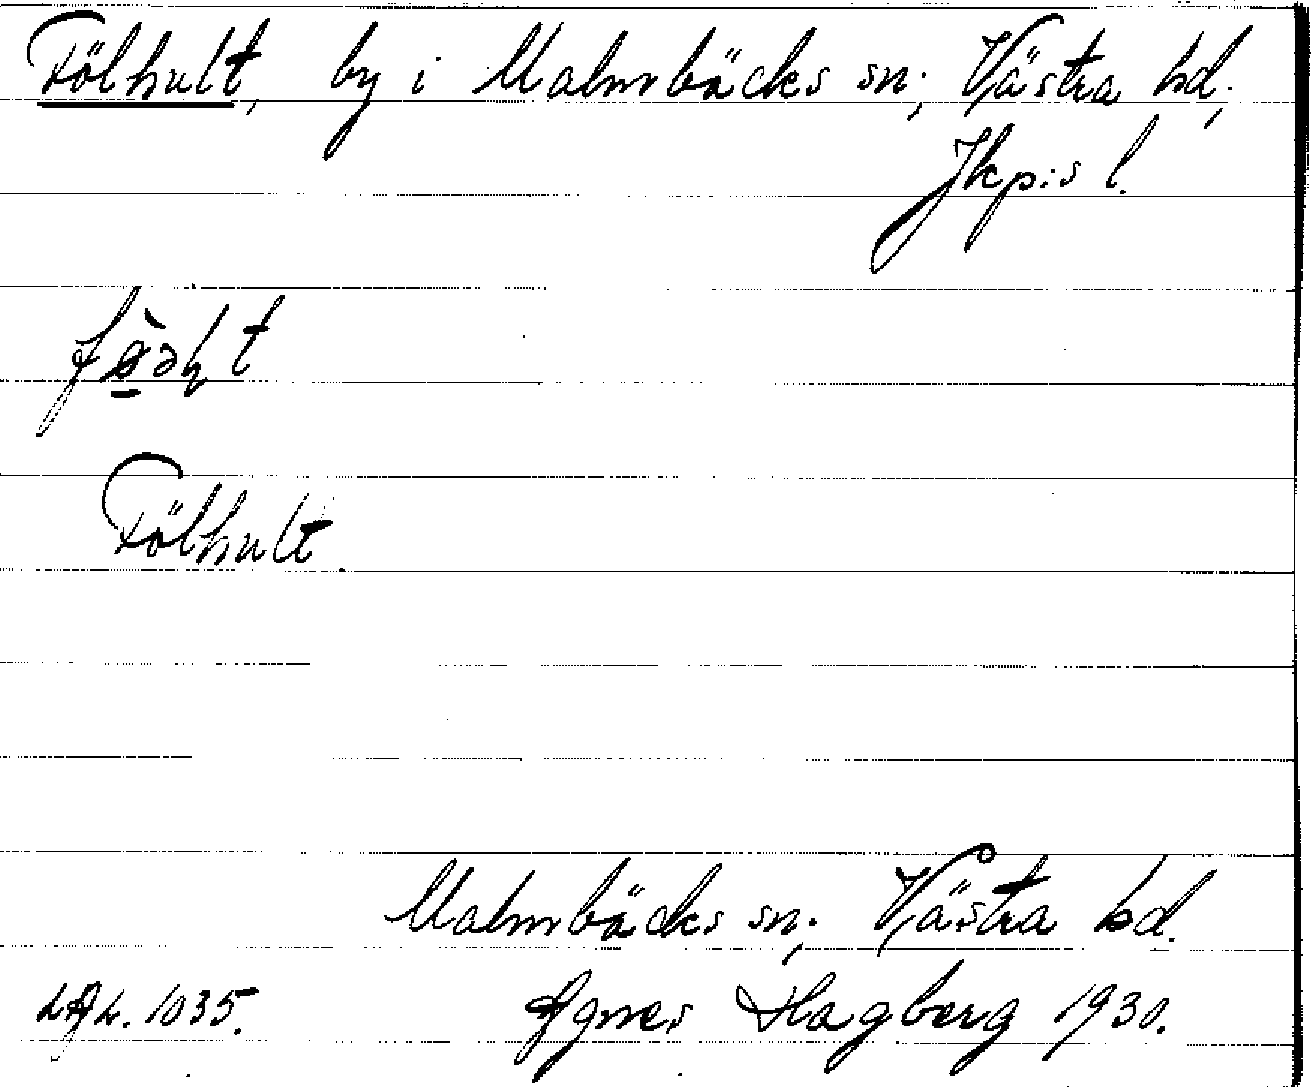 Fölhult, by i Malmbäcks sn; Västra hd;
Jkp:s l.
Fölhult.
Malmbäcks sn; Västra hd.
1035. Agnes Hagberg 1930.